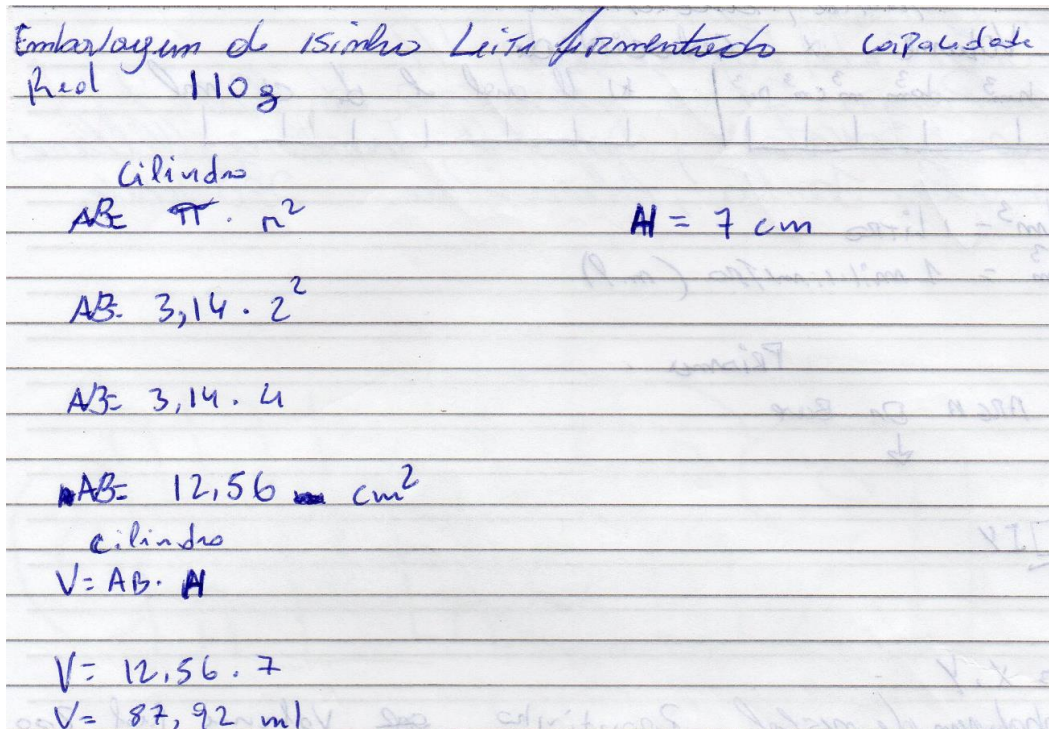 Embalagem de isinho Leite fermentado capacidade
Real 110 g
cilindro
AB= π . r²
H = 7 cm
AB= 3,14 . 2²
AB= 3,14 . 4
AB= 12,56 cm²
cilindro
V= AB. H
V= 12,56 . 7
V= 87,92 ml